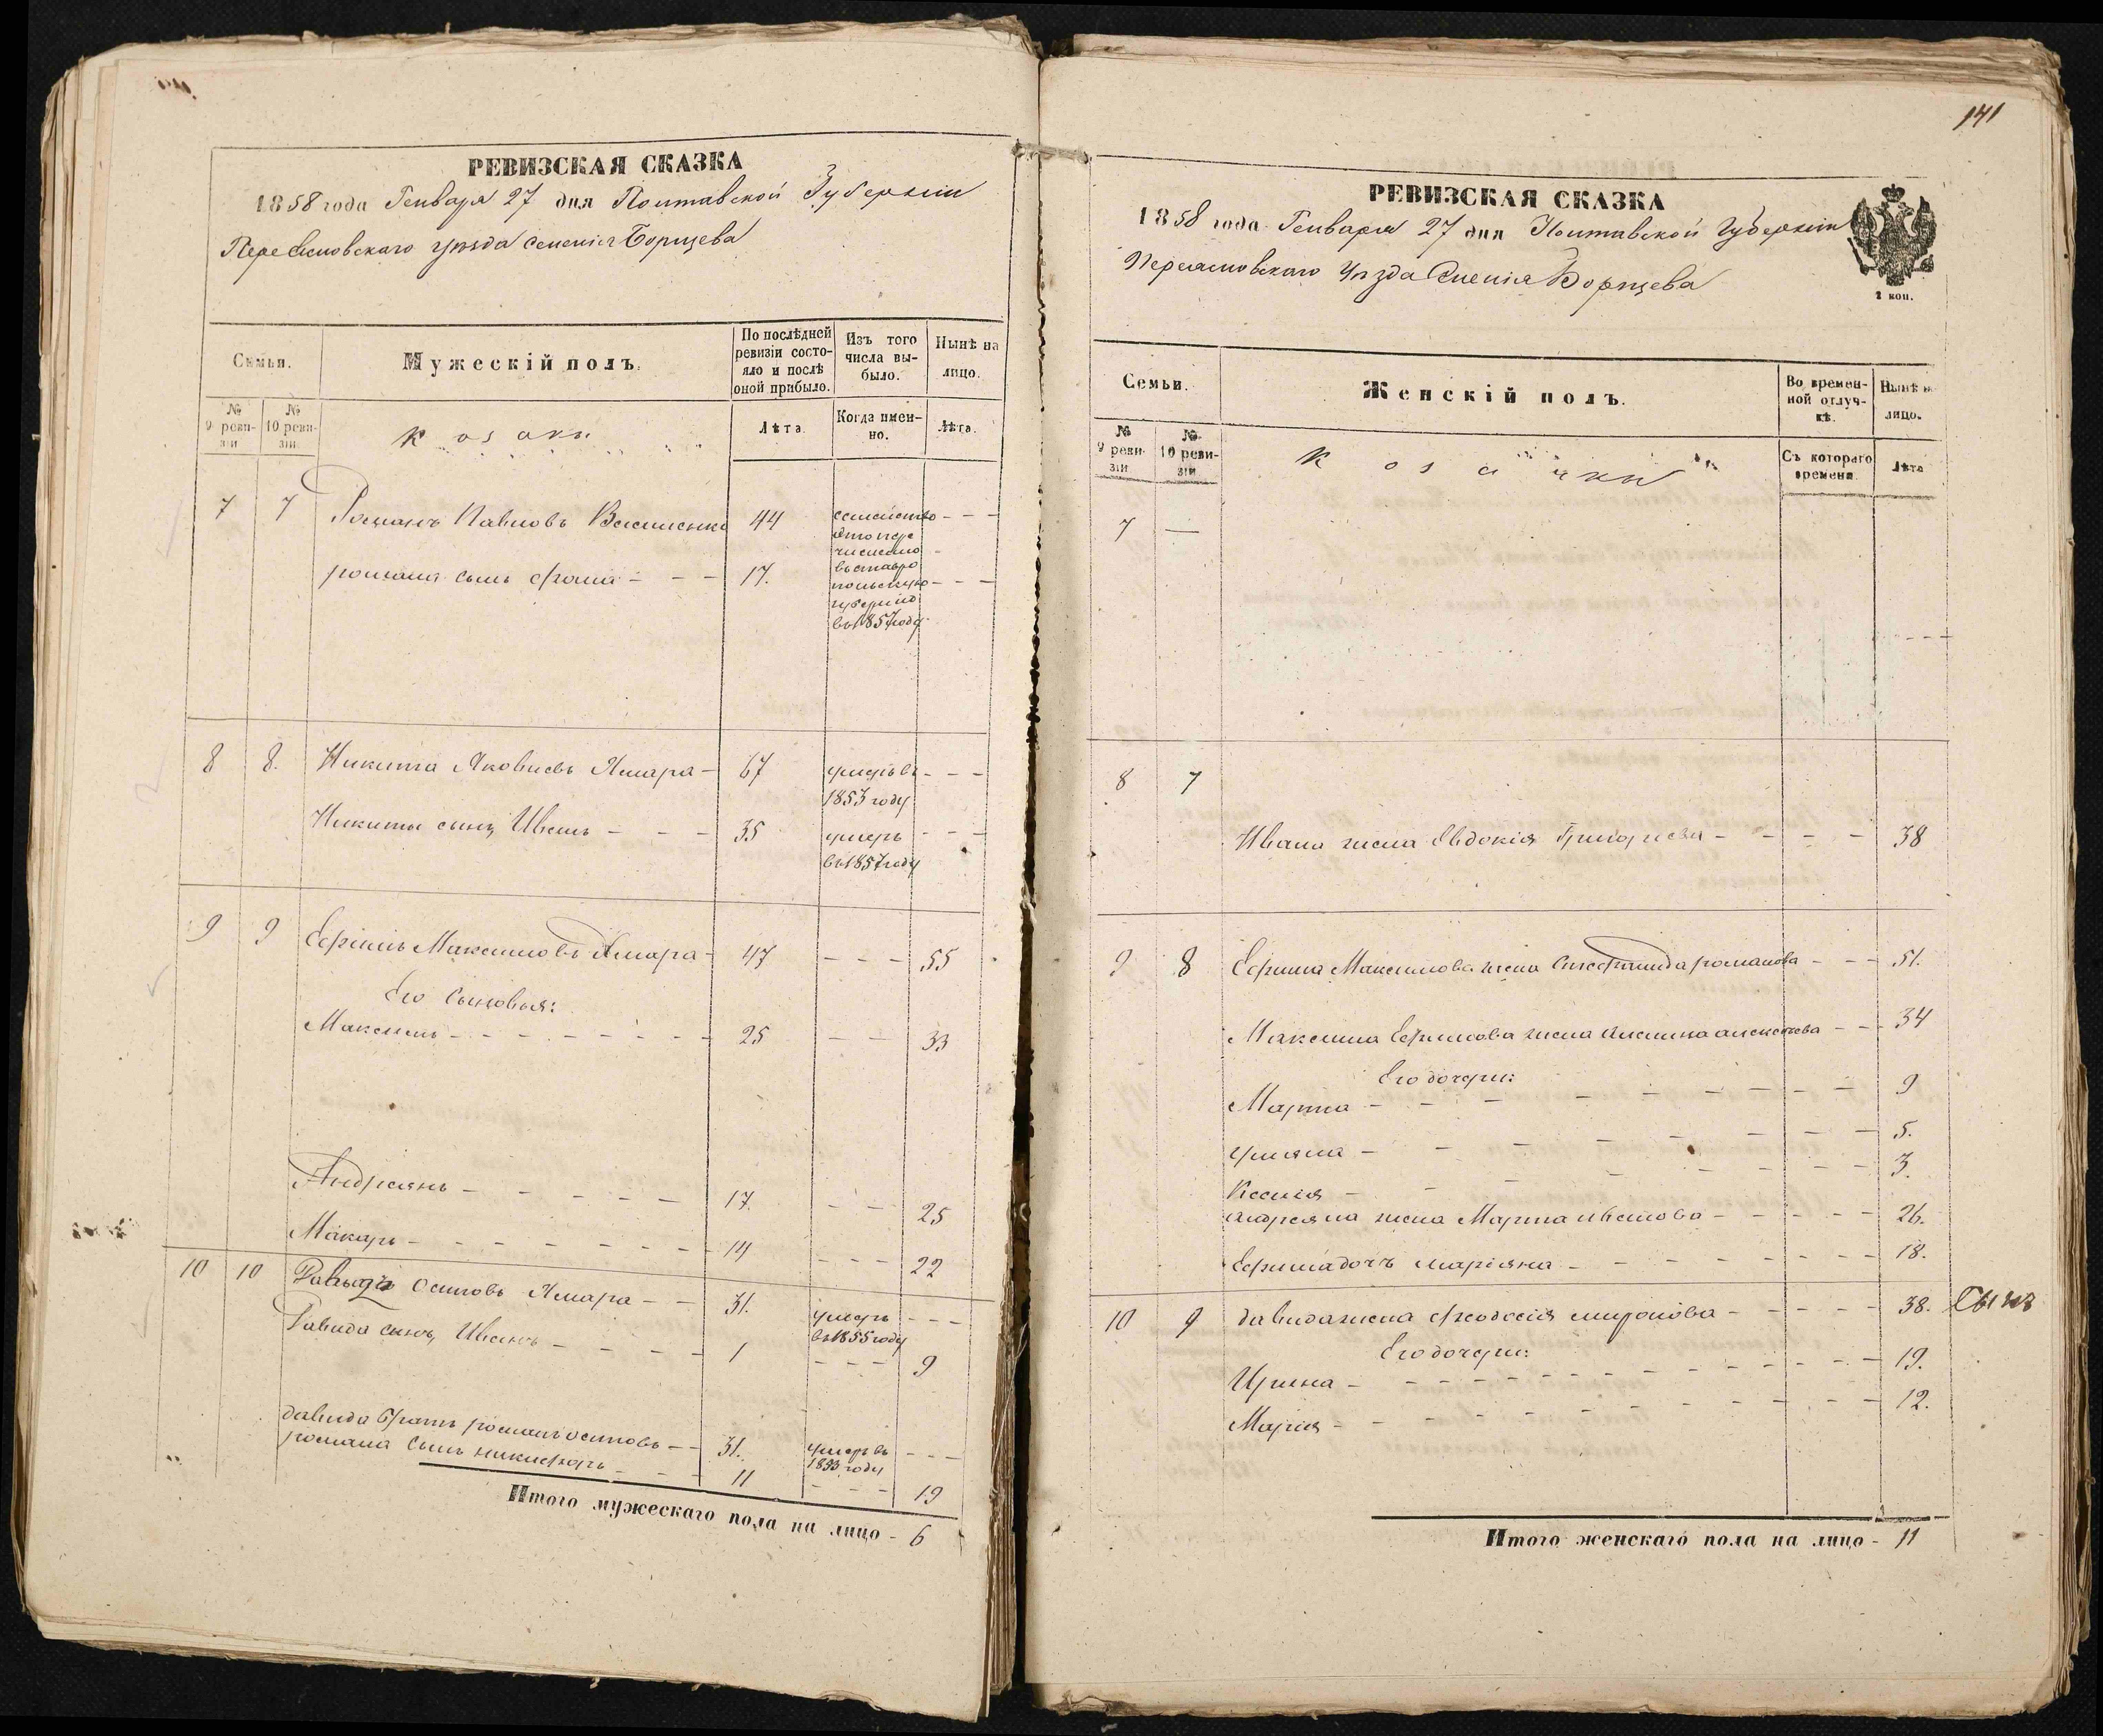 РЕВИЗСКАЯ СКАЗКА
1858 года Генваря 27 дня Полтавской Губерніи
Переяславскаго уѣзда селенія Борщева
Семьи.
Мужескій полъ.
По послѣдней ревизіи состояло и послѣ оной прибыло.
Изъ того числа выбыло.
Нынѣ на лицо.
№ 9 ревизіи
№ 10 ревизіи.
козаки
Лѣта.
Когда именно.
Лѣта.
7 7 Романъ Павловъ 44 семейство - - -
это пере
числено
романа сынъ Фома - - - 17. въ ставро
польскую - - -
губернію
въ 1857 году
8 8. Никита Яковлевъ Ямара - 67 умеръ въ - - -
1853 году
Никиты сынъ Иванъ - - - 35 умеръ - - -
въ 1857 году
9 9 Ефимъ Максимовъ Ямара - 47 - - - 55
Его сыновья:
Максимъ - - - - - - - 25 - - 33
Андреянъ - - - - - 17. - - 25
Макаръ - - - - - - - 14 - - - 22
10 10 Давыдъ Осиповъ Ямара - - 31. умеръ - - -
въ 1855 году
Давида сынъ Иванъ - - - - 1 - - - 9
давида братъ романъ осиповъ - - 31. умеръ въ - - -
1853 году
романа сынъ никифоръ - - - 11 - - - 19
Итого мужескаго пола на лицо - 6
141
РЕВИЗСКАЯ СКАЗКА
1858 года Генваря 27 дня Полтавской Губерніи
Переяславскаго Уѣзда Селенія Борщева
2 коп.
Семьи.
Женскій полъ.
Во временной отлучкѣ.
Нынѣ на лицо.
№ 9 ревизіи
№ 10 ревизіи
козачки
Съ котораго времени.
Лѣта
7 —
- - -
8 7
Ивана жена Евдокія Григориева - - - - 38
9 8 Ефима Максимова жена романова - - - 51.
Максима Ефимова жена - - - 34
Его дочери:
Марта - - - - - - - - 9
Уліяна - - - - - - - - 5.
Ксенія - - - - - - - 3.
андреяна жена Марта иванова - - - - - 26.
Ефима дочъ маріяна - - - - - - - 18.
10 9 давида жена Феодосія миронова - - - - - 38.
Его дочери:
Ирина - - - - - - - - - - - - 19.
Марія - - - - - - - - - - - - 12.
Итого женскаго пола на лицо - 11